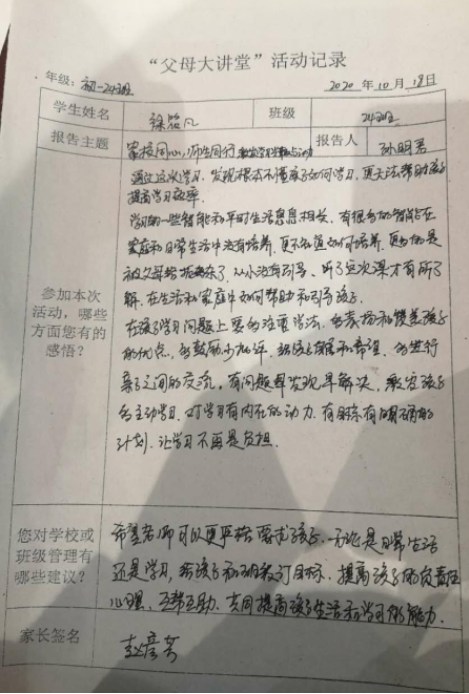 “父母大讲堂”活动记录
年级：初一24班 2020年10月18日
学生姓名 徐铭凡 班级 24班
报告主题 家校同心，师生同行 报告人 孙明君
通过这次学习，发现根本不懂孩子如何学习，更无法帮助孩子
提高学习效率。
学习的一些智能和平时生活息息相关，有很多的智能在
家庭和日常生活中没有培养，更不知道如何培养，更多的是
被父母给扼杀了，从小没有引导，听了这次课才有所了
解，在生活和家庭中如何帮助和引导孩子。
在孩子学习问题上要多注重学法，多表扬和赞美孩子
的优点，多鼓励少批评，给孩子期和希望，多进行
亲子之间的交流，有问题早发现早解决，教育孩子
的主动学习，对学习有内在的动力，有目标有明确的
计划，让学习不再是负担。
参加本次
活动，哪些
方面您有的
感悟？
您对学校或
班级管理有
哪些建议？
希望老师可以更严格要求孩子，无论是日常生活
还是学习，给孩子和明确订目标，提高孩子的负责任
心理，互帮互助，共同提高孩子生活和学习的能力。
家长签名 赵彦芳